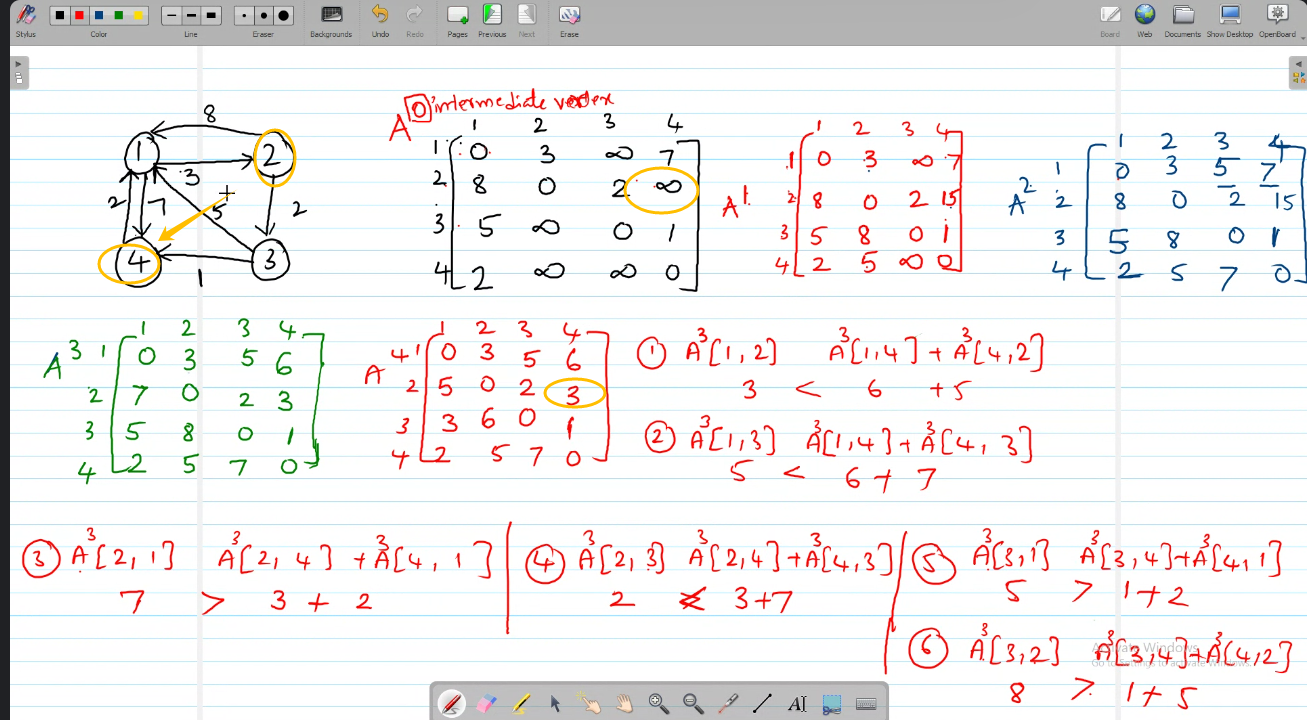 Stylus Color Line Eraser Backgrounds Undo Redo Pages Previous Next Erase Board Web Documents Show Desktop OpenBoard
8
1 2
3
2 7 5 2
4 3
1
A 0 intermediate vertex
1 2 3 4
1 0 3 ∞ 7
2 8 0 2 ∞
3 5 ∞ 0 1
4 2 ∞ ∞ 0
A 1
1 2 3 4
1 0 3 ∞ 7
2 8 0 2 15
3 5 8 0 1
4 2 5 ∞ 0
A 2
1 2 3 4
1 0 3 5 7
2 8 0 2 15
3 5 8 0 1
4 2 5 7 0
A 3
1 2 3 4
1 0 3 5 6
2 7 0 2 3
3 5 8 0 1
4 2 5 7 0
A 4
1 2 3 4
1 0 3 5 6
2 5 0 2 3
3 3 6 0 1
4 2 5 7 0
① A³[1,2] A³[1,4] + A³[4,2]
3 < 6 + 5
② A³[1,3] A³[1,4] + A³[4, 3]
5 < 6 + 7
③ A³[2, 1] A³[2, 4] + A³[4, 1]
7 > 3 + 2
④ A³[2, 3] A³[2,4] + A³[4,3]
2 < 3+7
⑤ A³[3,1] A³[3,4] + A³[4,1]
5 > 1 + 2
⑥ A³[3,2] A³[3,4] + A³[4,2]
8 > 1 + 5
Activate Windows
Go to Settings to activate Windows.